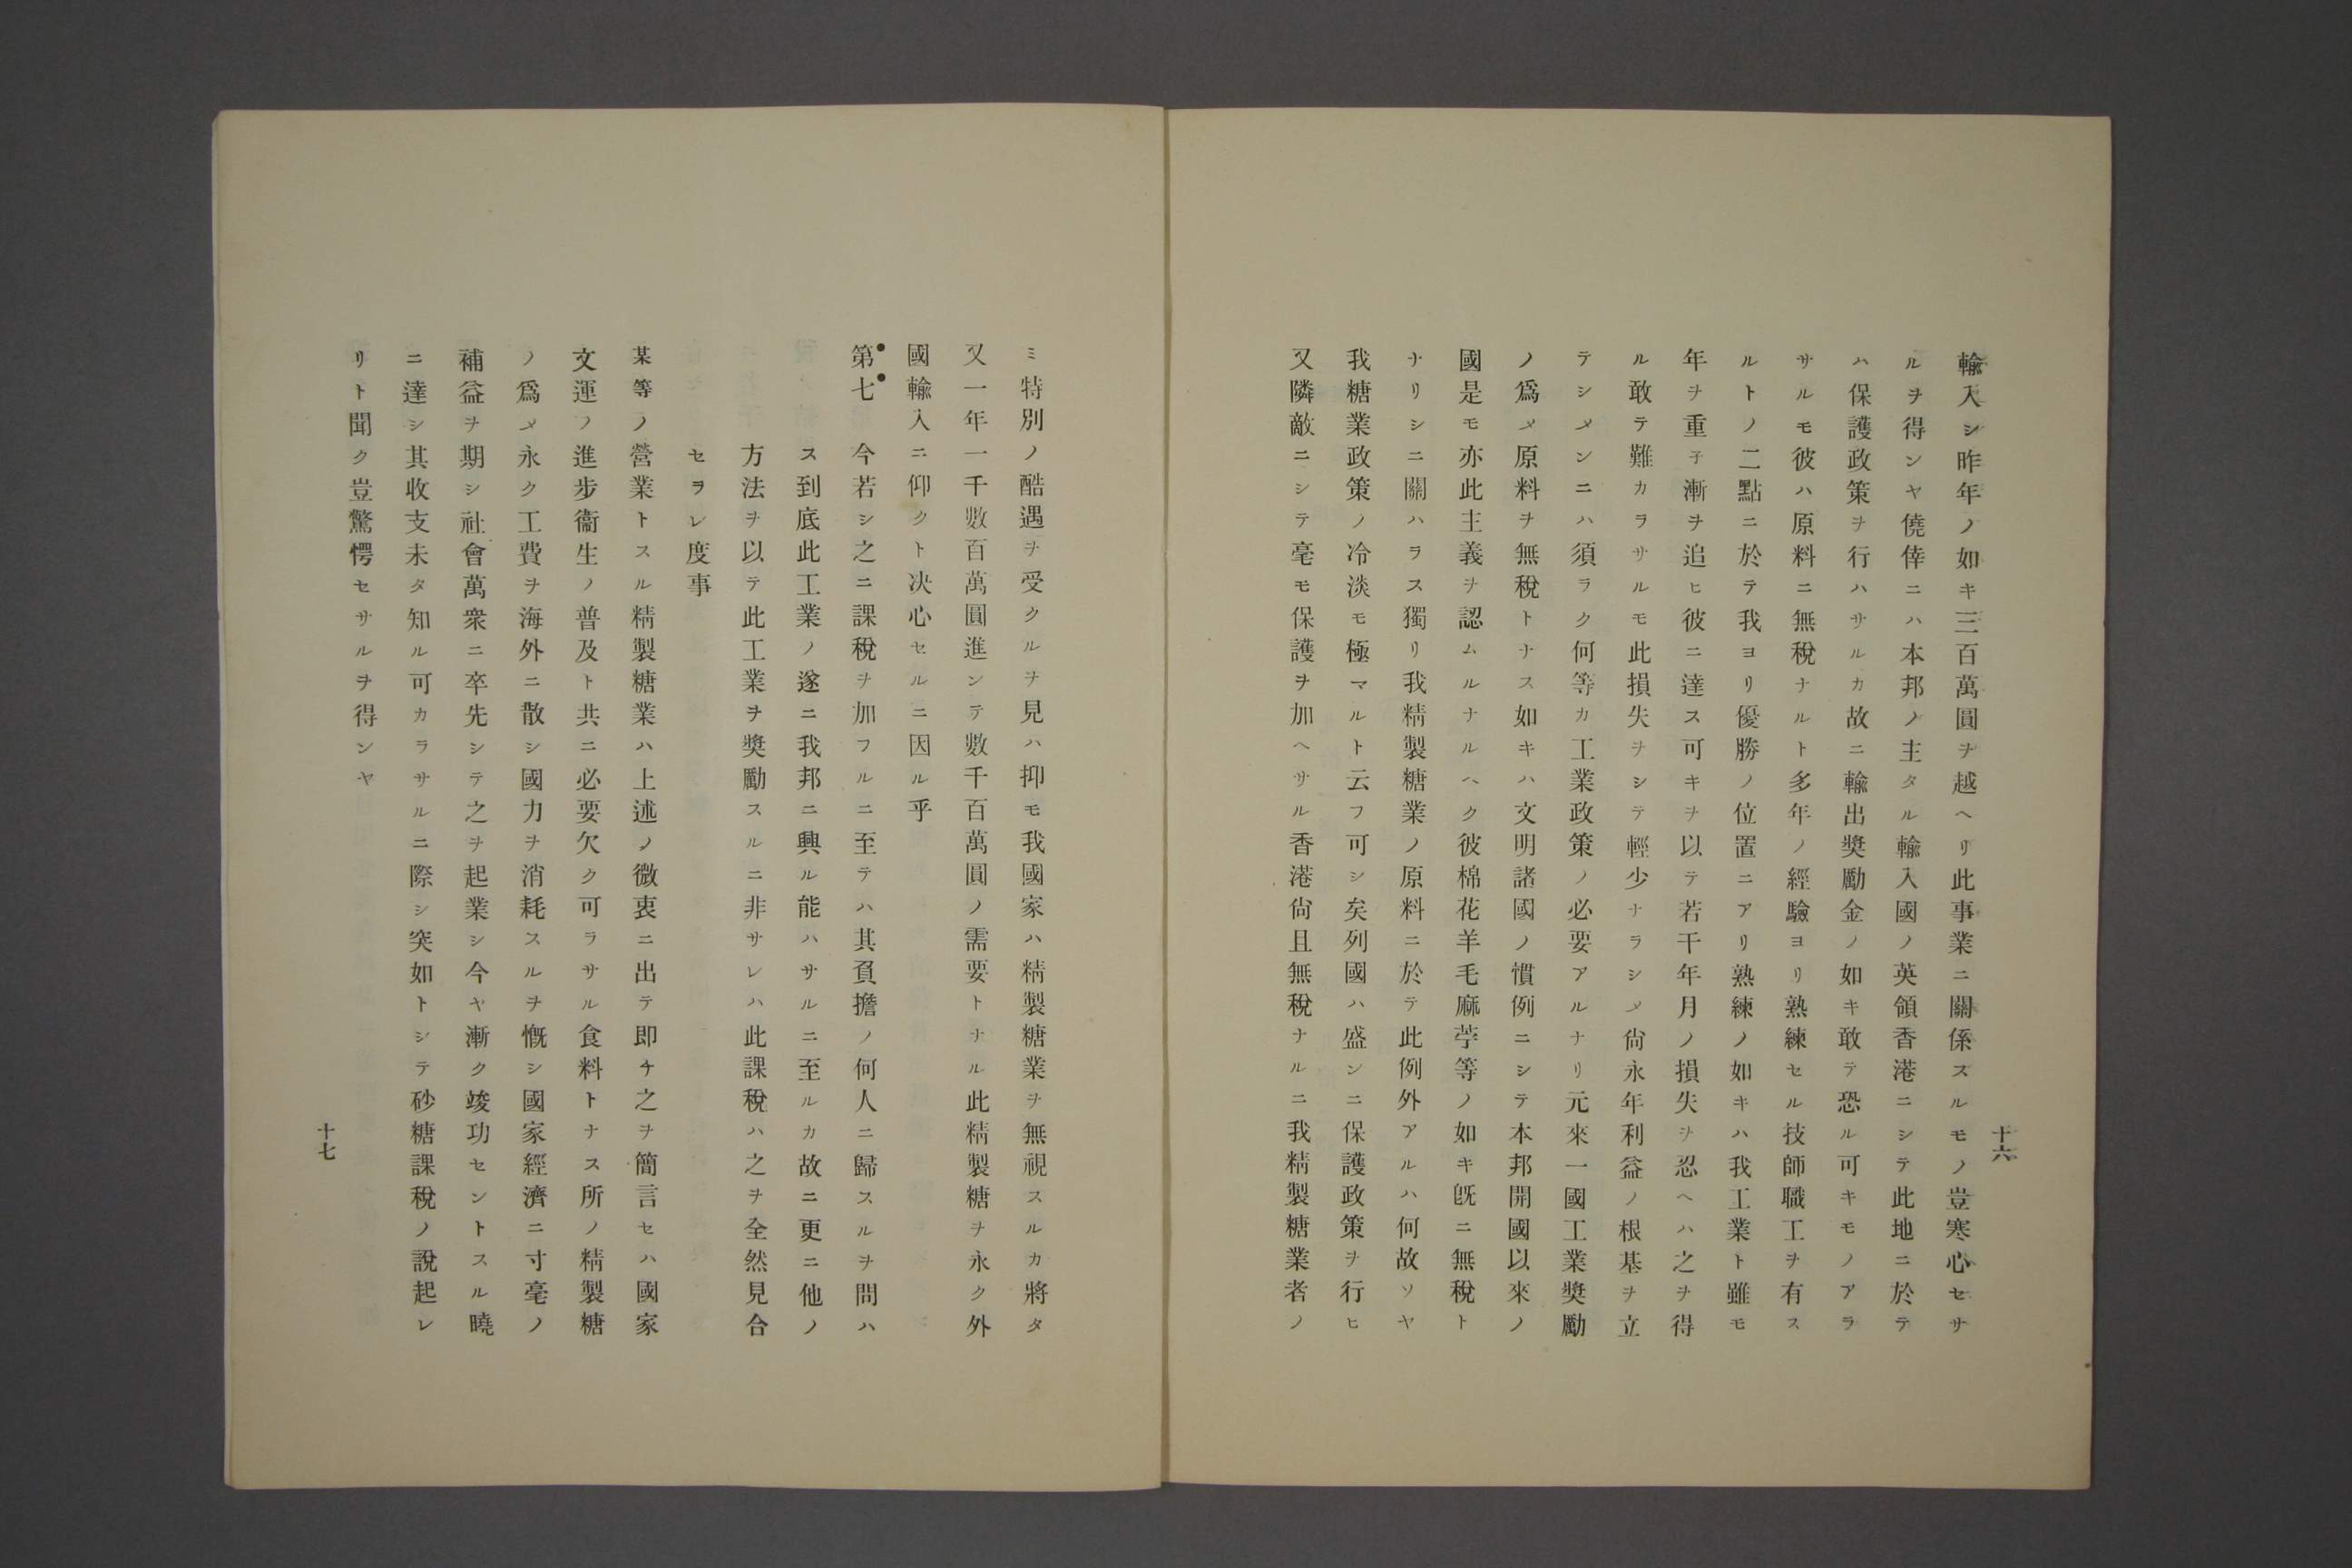 十六
輸入シ昨年ノ如キ三百萬圓ヲ越ヘリ此事業ニ關係スルモノ豈寒心セサ
ルヲ得ンヤ僥倖ニハ本邦ノ主タル輸入國ノ英領香港ニシテ此地ニ於テ
ハ保護政策ヲ行ハサルカ故ニ輸出奬勵金ノ如キ敢テ恐ル可キモノアラ
サルモ彼ハ原料ニ無稅ナルト多年ノ經驗ヨリ熟練セル技師職工ヲ有ス
ルトノ二點ニ於テ我ヨリ優勝ノ位置ニアリ熟練ノ如キハ我工業ト雖モ
年ヲ重子漸ヲ追ヒ彼ニ達ス可キヲ以テ若干年月ノ損失ヲ忍ヘハ之ヲ得
ル敢テ難カラサルモ此損失ヲシテ輕少ナラシメ尙永年利益ノ根基ヲ立
テシメンニハ須ラク何等カ工業政策ノ必要アルナリ元來一國工業奬勵
ノ爲メ原料ヲ無稅トナス如キハ文明諸國ノ慣例ニシテ本邦開國以來ノ
國是モ亦此主義ヲ認ムルナルヘク彼棉花羊毛麻苧等ノ如キ旣ニ無稅ト
ナリシニ關ハラス獨リ我精製糖業ノ原料ニ於テ此例外アルハ何故ソヤ
我糖業政策ノ冷淡モ極マルト云フ可シ矣列國ハ盛ンニ保護政策ヲ行ヒ
又隣敵ニシテ毫モ保護ヲ加ヘサル香港尙且無稅ナルニ我精製糖業者ノ
ミ特別ノ酷遇ヲ受クルヲ見ハ抑モ我國家ハ精製糖業ヲ無視スルカ將タ
又一年一千數百萬圓進ンテ數千百萬圓ノ需要トナル此精製糖ヲ永ク外
國輸入ニ仰クト决心セルニ因ル乎
第七　今若シ之ニ課稅ヲ加フルニ至テハ其負擔ノ何人ニ歸スルヲ問ハ
ス到底此工業ノ遂ニ我邦ニ興ル能ハサルニ至ルカ故ニ更ニ他ノ
方法ヲ以テ此工業ヲ奬勵スルニ非サレハ此課稅ハ之ヲ全然見合
セヲレ度事
某等ノ營業トスル精製糖業ハ上述ノ微衷ニ出テ即チ之ヲ簡言セハ國家
文運ノ進步衞生ノ普及ト共ニ必要欠ク可ラサル食料トナス所ノ精製糖
ノ爲メ永ク工費ヲ海外ニ散シ國力ヲ消耗スルヲ慨シ國家經濟ニ寸毫ノ
補益ヲ期シ社會萬衆ニ卒先シテ之ヲ起業シ今ヤ漸ク竣功セントスル曉
ニ達シ其收支未タ知ル可カラサルニ際シ突如トシテ砂糖課稅ノ說起レ
リト聞ク豈驚愕セサルヲ得ンヤ
十七